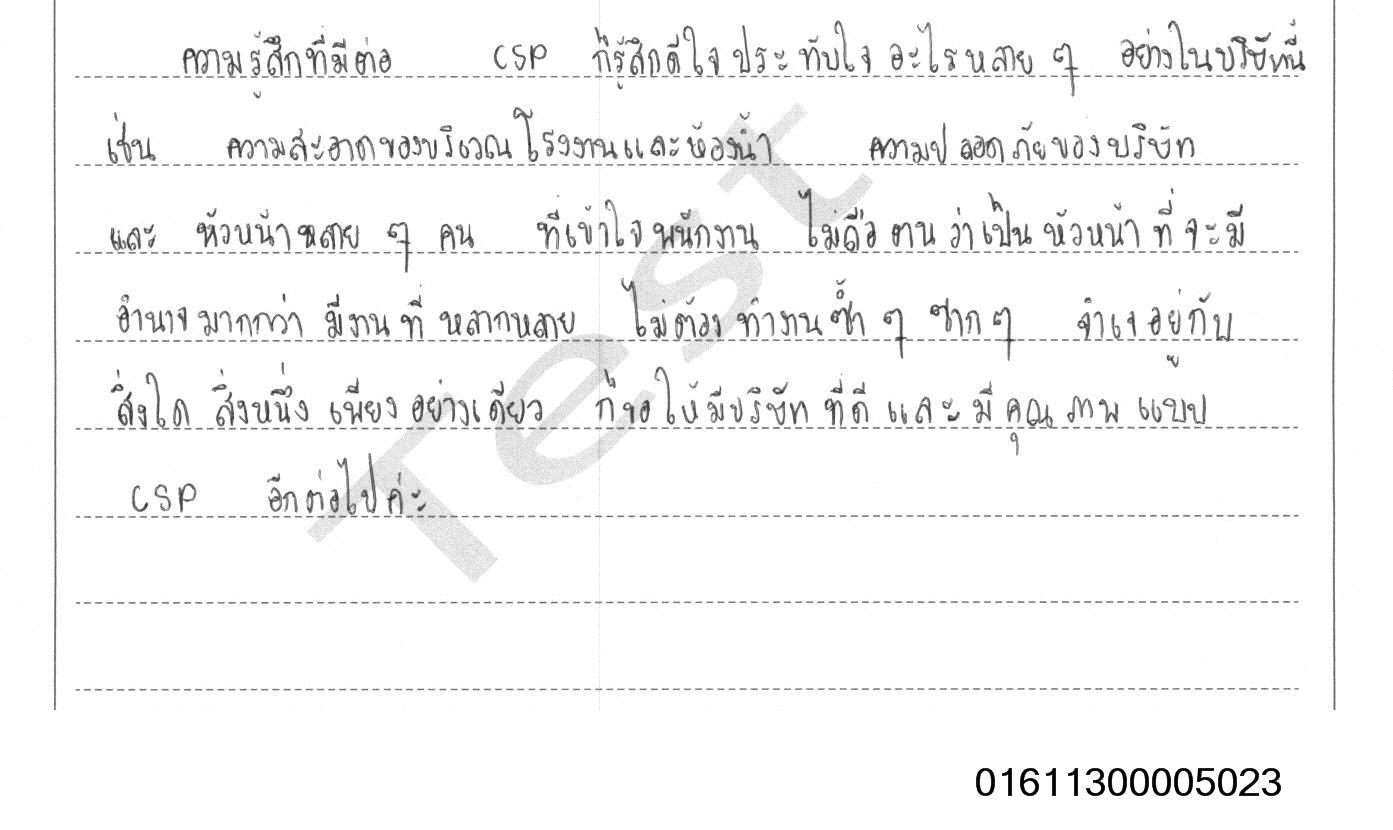 ความรู้สึกที่มีต่อ CSP ก็รู้สึกดีใจ ประทับใจ อะไรหลาย ๆ อย่างในบริษัทนี้
เช่น ความสะอาดของบริเวณโรงงานและห้องน้ำ ความปลอดภัยของบริษัท
และ หัวหน้าหลาย ๆ คน ที่เข้าใจพนักงาน ไม่ถือตนว่าเป็นหัวหน้าที่จะมี
อำนาจมากกว่า มีงานที่หลากหลาย ไม่ต้องทำงานซ้ำ ๆ ซาก ๆ จำเจอยู่กับ
สิ่งใด สิ่งหนึ่ง เพียงอย่างเดียว ก็ขอให้มีบริษัทที่ดีและมีคุณภาพแบบ
CSP อีกต่อไปค่ะ
Test
01611300005023